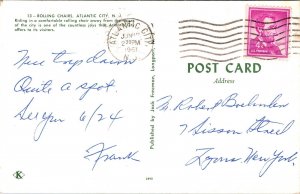 13—ROLLING CHAIRS, ATLANTIC CITY, N. J.
Riding in a comfortable rolling chair away from the
of the city is one of the countless joys Atl
offers to its visitors.
ATLANTIC CITY
JUN
2 30 PM
1961
Nice trip down
Quite a spot.
See you 6/24
Frank
Published by Jack Freeman, Longport
POST CARD
Address
M. Robert
7 Sisson Street
Lyons New York
K